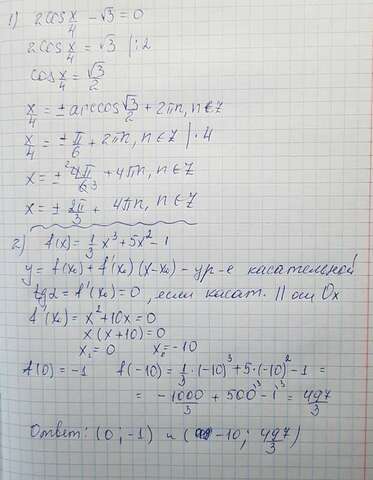 1) 2cos x/4 - √3 = 0
2cos x/4 = √3 |:2
cos x/4 = √3/2
x/4 = ± arccos √3/2 + 2πn, n∈Z
x/4 = ± π/6 + 2πn, n∈Z |·4
x = ± 4π/6 + 4πn, n∈Z
x = ± 2π/3 + 4πn, n∈Z
2) f(x) = 1/3 x³ + 5x² - 1
y = f(x₀) + f'(x₀)(x-x₀) - ур-е касательной
tg α = f'(x₀) = 0, если касат. || оси Ox
f'(x₀) = x² + 10x = 0
x(x+10) = 0
x₁ = 0 x₂ = -10
f(0) = -1 f(-10) = 1/3·(-10)³ + 5·(-10)² - 1 =
= -1000/3 + 500 - 1 = 497/3
Ответ: (0; -1) и (-10; 497/3)